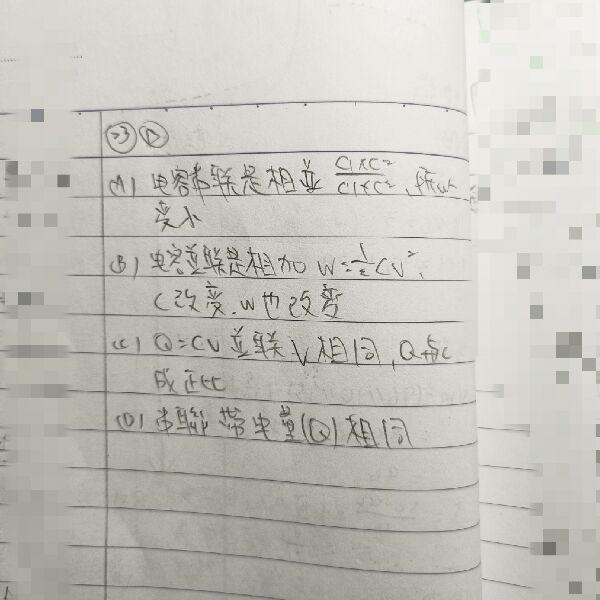 23 D
(A) 电容串联是相並 C1×C2/C1×C2、所以
变小
(B) 电容並联是相加 W=1/2CV²、
C改变.W也改变
(C) Q=CV並联V相同,Q与C
成正比
(D) 串聯带电量(Q)相同